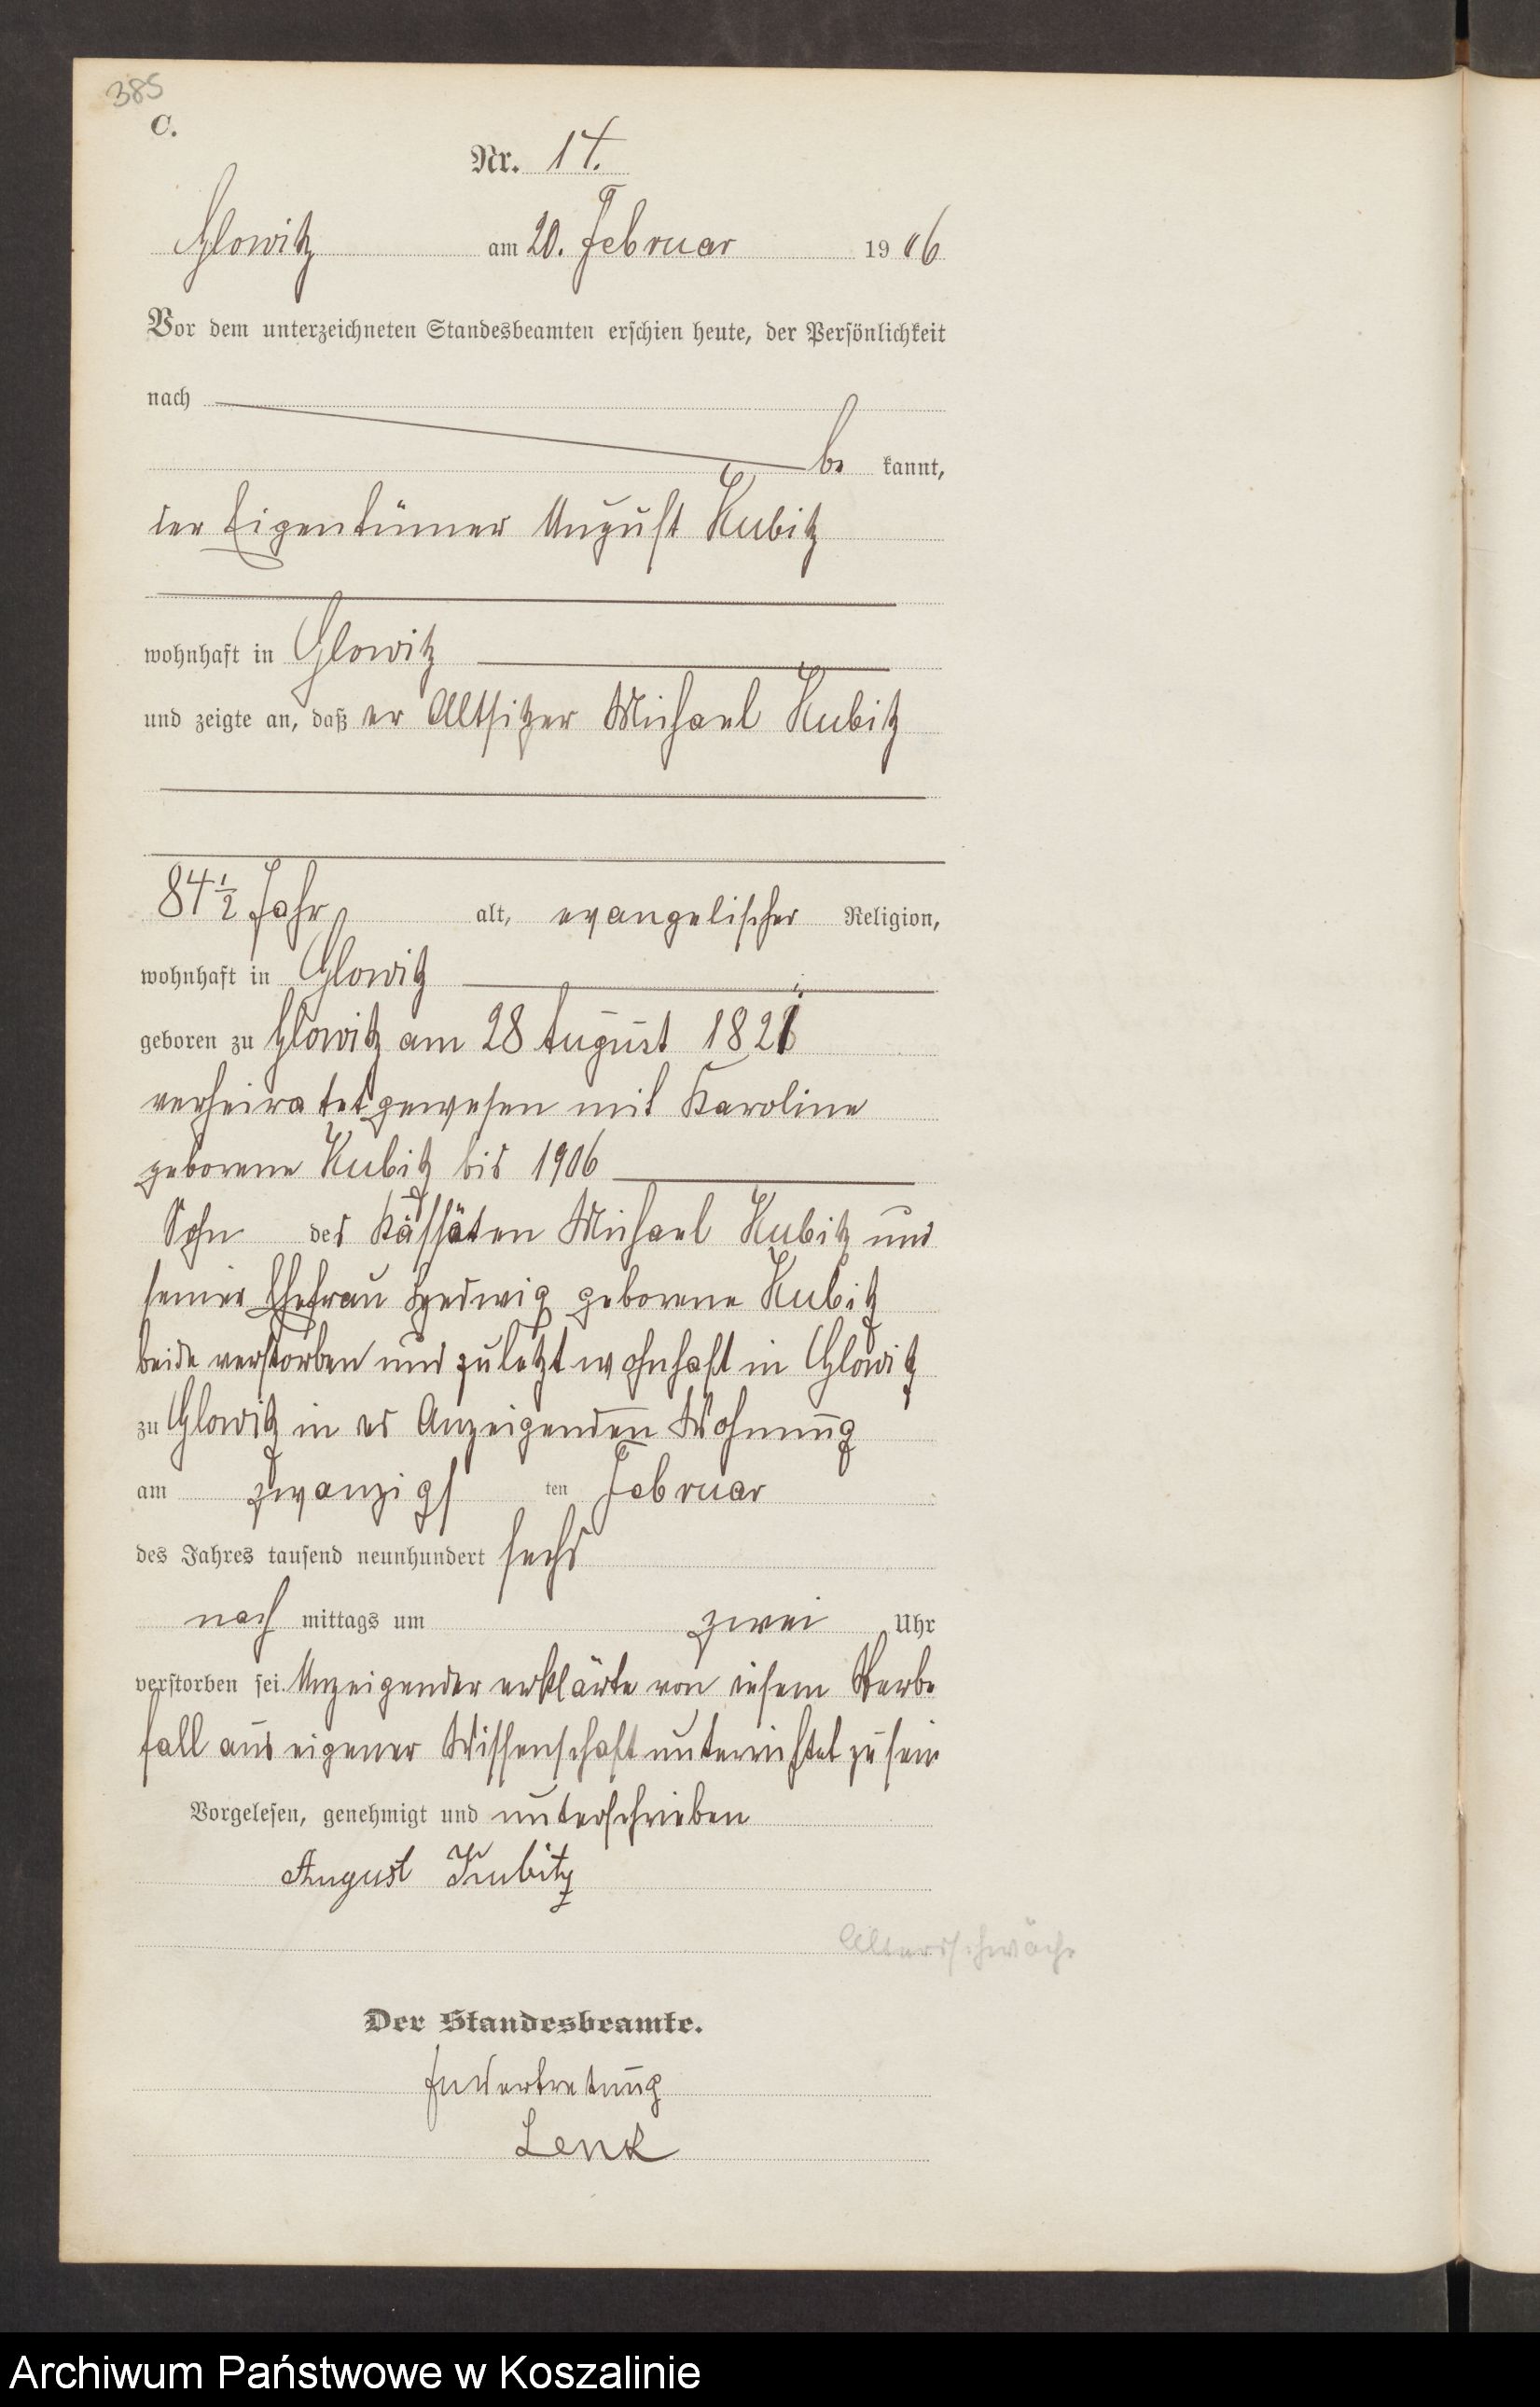 385
C.
Nr. 14.
Glowitz am 20. Februar 1906
Vor dem unterzeichneten Standesbeamten erschien heute, der Persönlichkeit
nach
be kannt,
der Eigentümer August Kubitz
wohnhaft in Glowitz
und zeigte an, daß der Altsitzer Michael Kubitz
84 1/2 Jahr alt, evangelischer Religion,
wohnhaft in Glowitz
geboren zu Glowitz am 28 August 1821
verheiratet gewesen mit Karoline
geborene Kubitz bis 1906
Sohn des Kossäten Michael Kubitz und
seiner Ehefrau Hedwig geborene Kubitz
beide verstorben und zuletzt wohnhaft in Glowitz
zu Glowitz in des Anzeigenden Wohnung
am zwanzigsten Februar
des Jahres tausend neunhundert sechs
nach mittags um zwei Uhr
verstorben sei. Anzeigender erklärte von diesem Sterbe
fall aus eigener Wissenschaft unterrichtet zu sein
Vorgelesen, genehmigt und unterschrieben
August Kubitz
Altersschwäche
Der Standesbeamte.
In Vertretung
Lenk
Archiwum Państwowe w Koszalinie